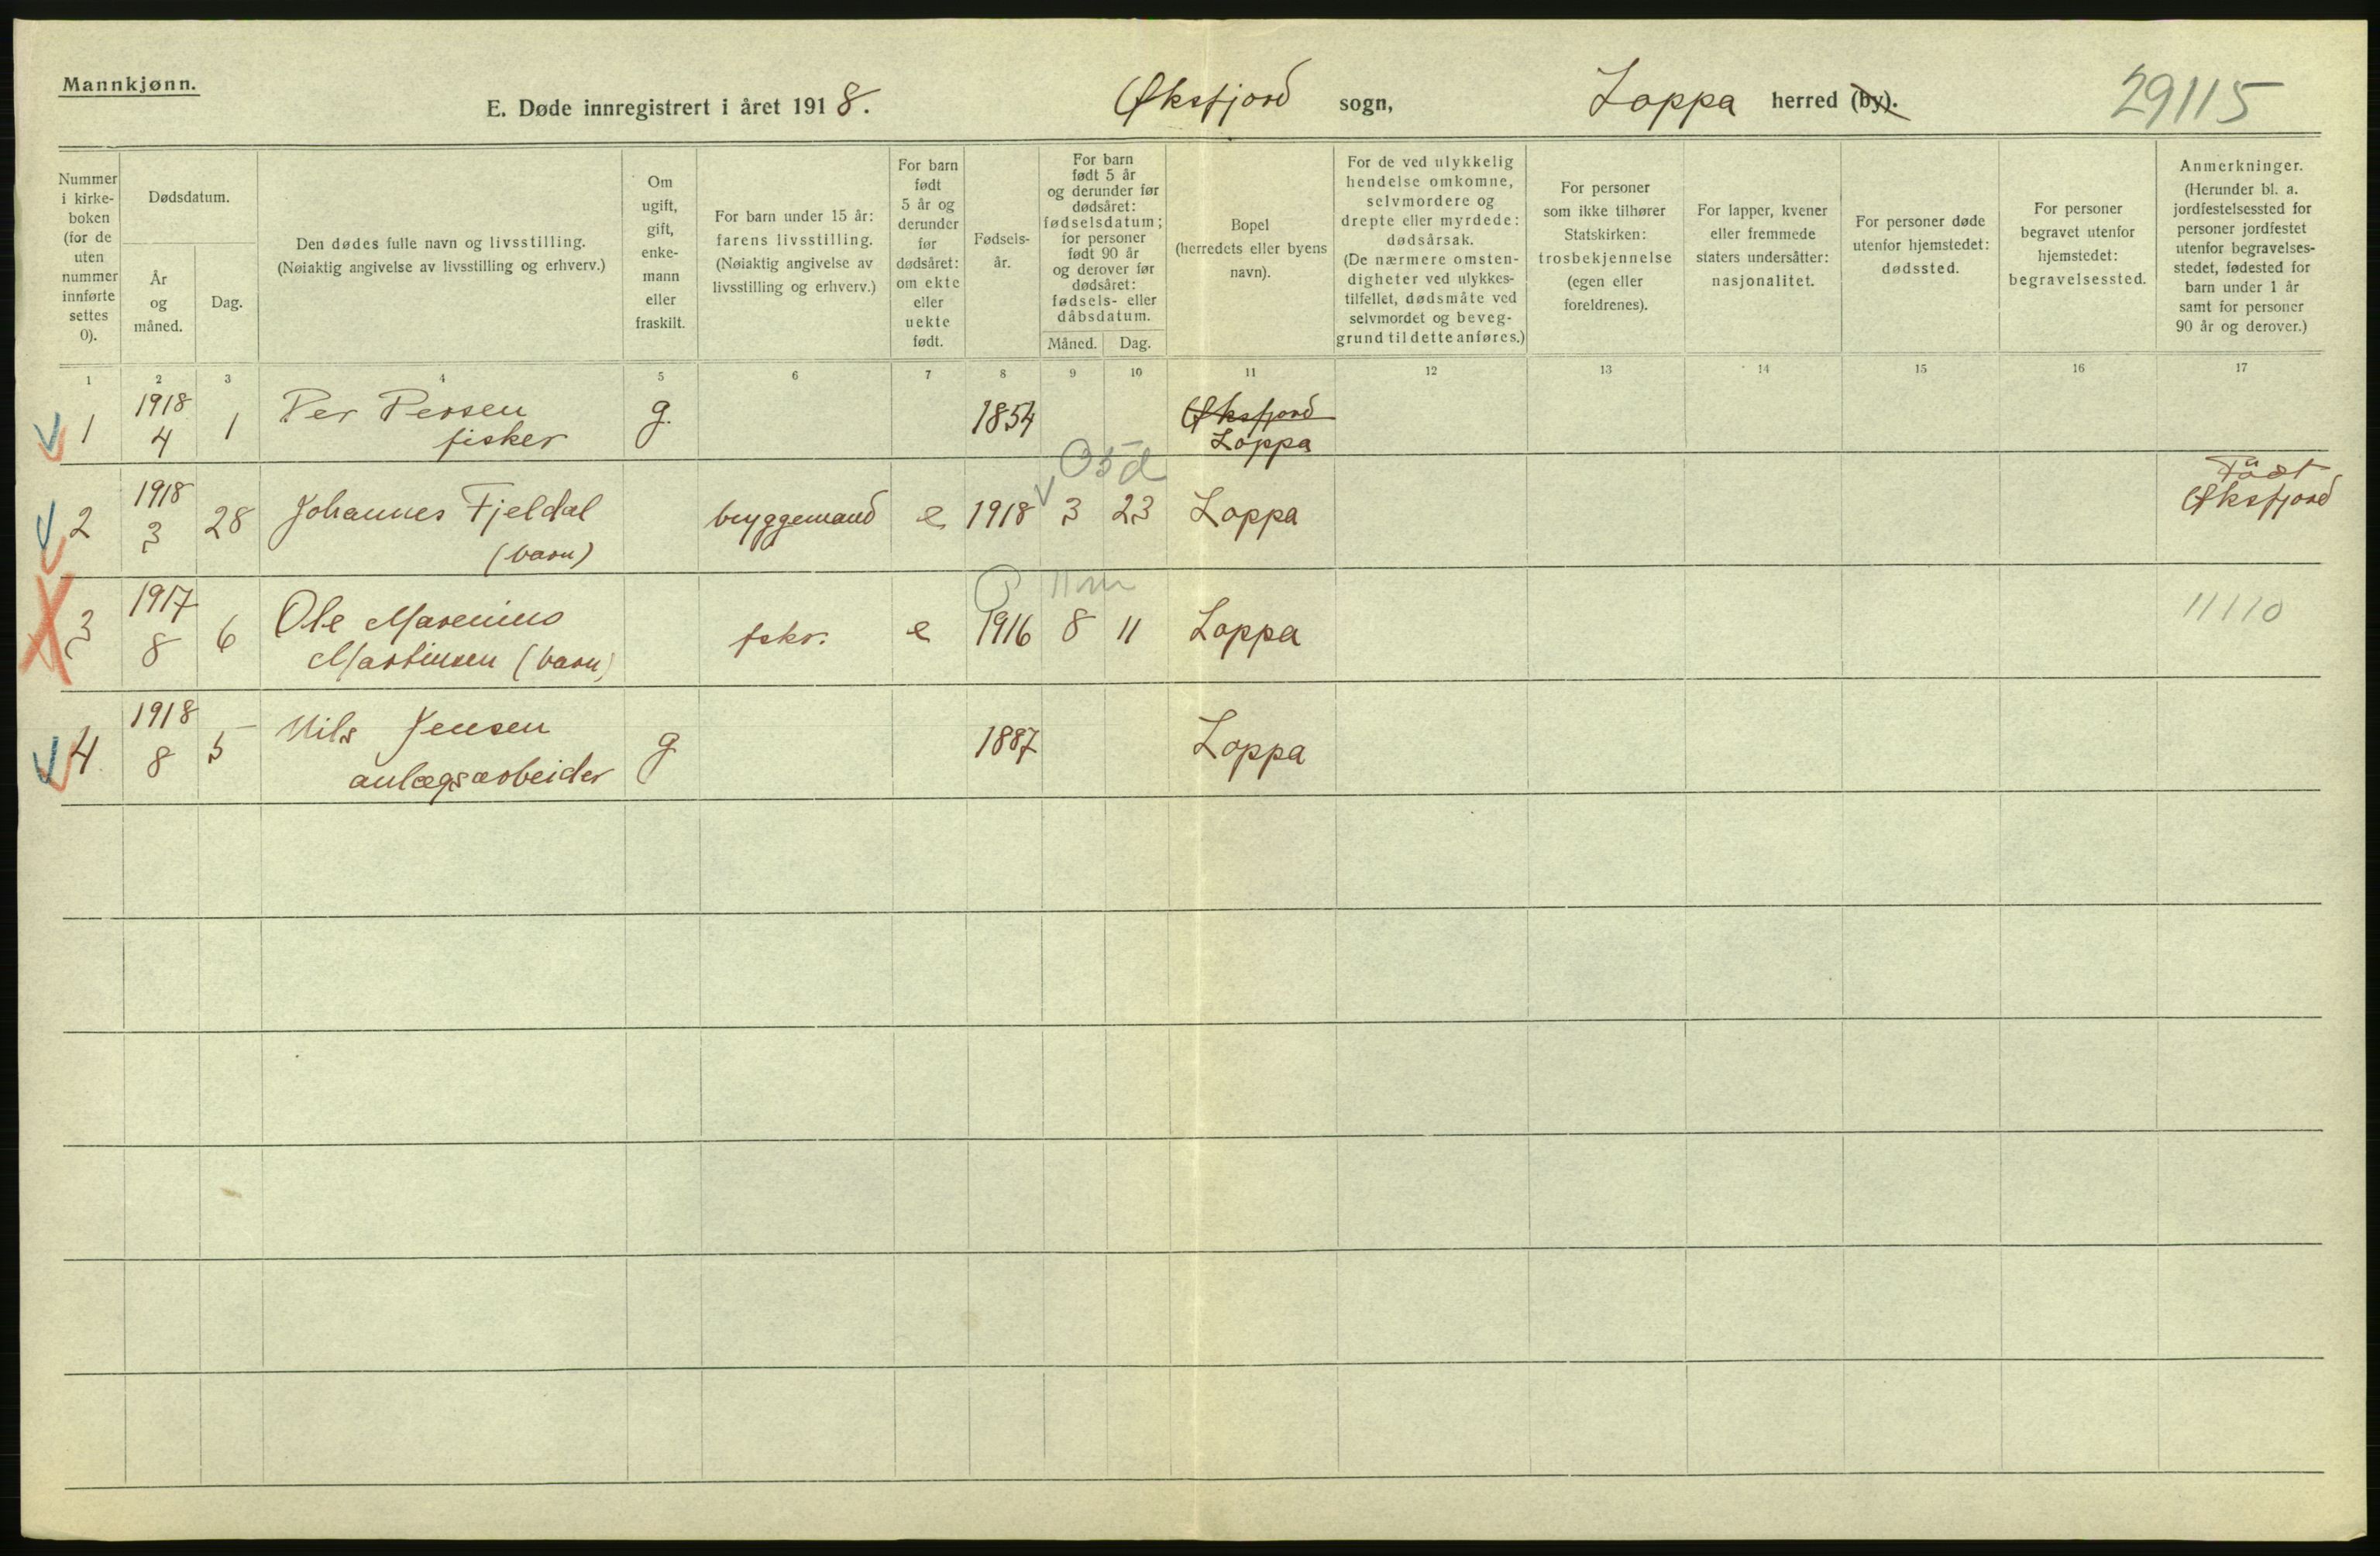 Mannkjønn.
E. Døde innregistrert i året 1918.
Øksfjord sogn,
Loppa herred (by).
29115
Nummer
i kirke-
boken
(for de
uten
nummer
innførte
settes
0).
Dødsdatum.
År
og
måned.
Dag.
Den dødes fulle navn og livsstilling.
(Nøiaktig angivelse av livsstilling og erhverv.)
Om
ugift,
gift,
enke-
mann
eller
fraskilt.
For barn under 15 år:
farens livsstilling.
(Nøiaktig angivelse av
livsstilling og erhverv.)
For barn
født
5 år og
derunder
før
dødsåret:
om ekte
eller
uekte
født.
Fødsels-
år.
For barn
født 5 år
og derunder før
dødsåret:
fødselsdatum;
for personer
født 90 år
og derover før
dødsåret:
fødsels- eller
dåbsdatum.
Måned.
Dag.
Bopel
(herredets eller byens
navn).
For de ved ulykkelig
hendelse omkomne,
selvmordere og
drepte eller myrdede:
dødsårsak.
(De nærmere omsten-
digheter ved ulykkes-
tilfellet, dødsmåte ved
selvmordet og beveg-
grund til dette anføres.)
For personer
som ikke tilhører
Statskirken:
trosbekjennelse
(egen eller
foreldrenes).
For lapper, kvener
eller fremmede
staters undersåtter:
nasjonalitet.
For personer døde
utenfor hjemstedet:
dødssted.
For personer
begravet utenfor
hjemstedet:
begravelsessted.
Anmerkninger.
(Herunder bl. a.
jordfestelsessted for
personer jordfestet
utenfor begravelses-
stedet, fødested for
barn under 1 år
samt for personer
90 år og derover.)
1 2 3 4 5 6 7 8 9 10 11 12 13 14 15 16 17
1 1918 4 1 Per Persen g. 1854 Øksfjord
fisker Loppa
O 5 d
2 1918 3 28 Johannes Fjeldal bryggemand e 1918 3 23 Loppa Født
(barn) Øksfjord
11 m
3 1917 8 6 Ole Marenius fskr. e 1916 8 11 Loppa 11110
Martinsen (barn)
4 1918 8 5 Nils Jensen g 1887 Loppa
anlægsarbeider